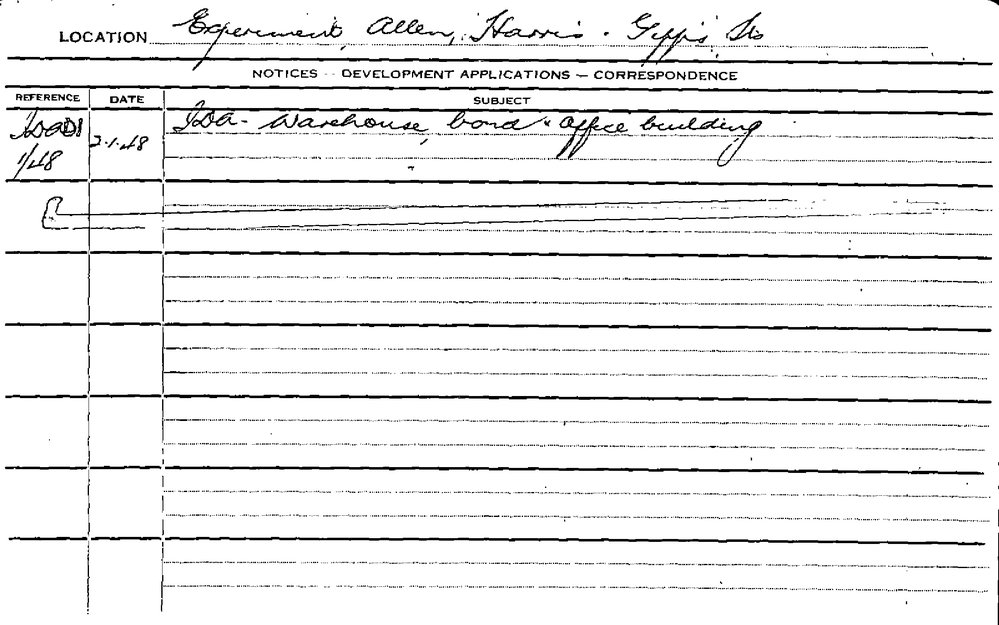 LOCATION Experiment, Allen, Harris. Gipps Sts
NOTICES - DEVELOPMENT APPLICATIONS - CORRESPONDENCE
REFERENCE DATE SUBJECT
2.1.48 IDA - Warehouse, bond & office building
1/48